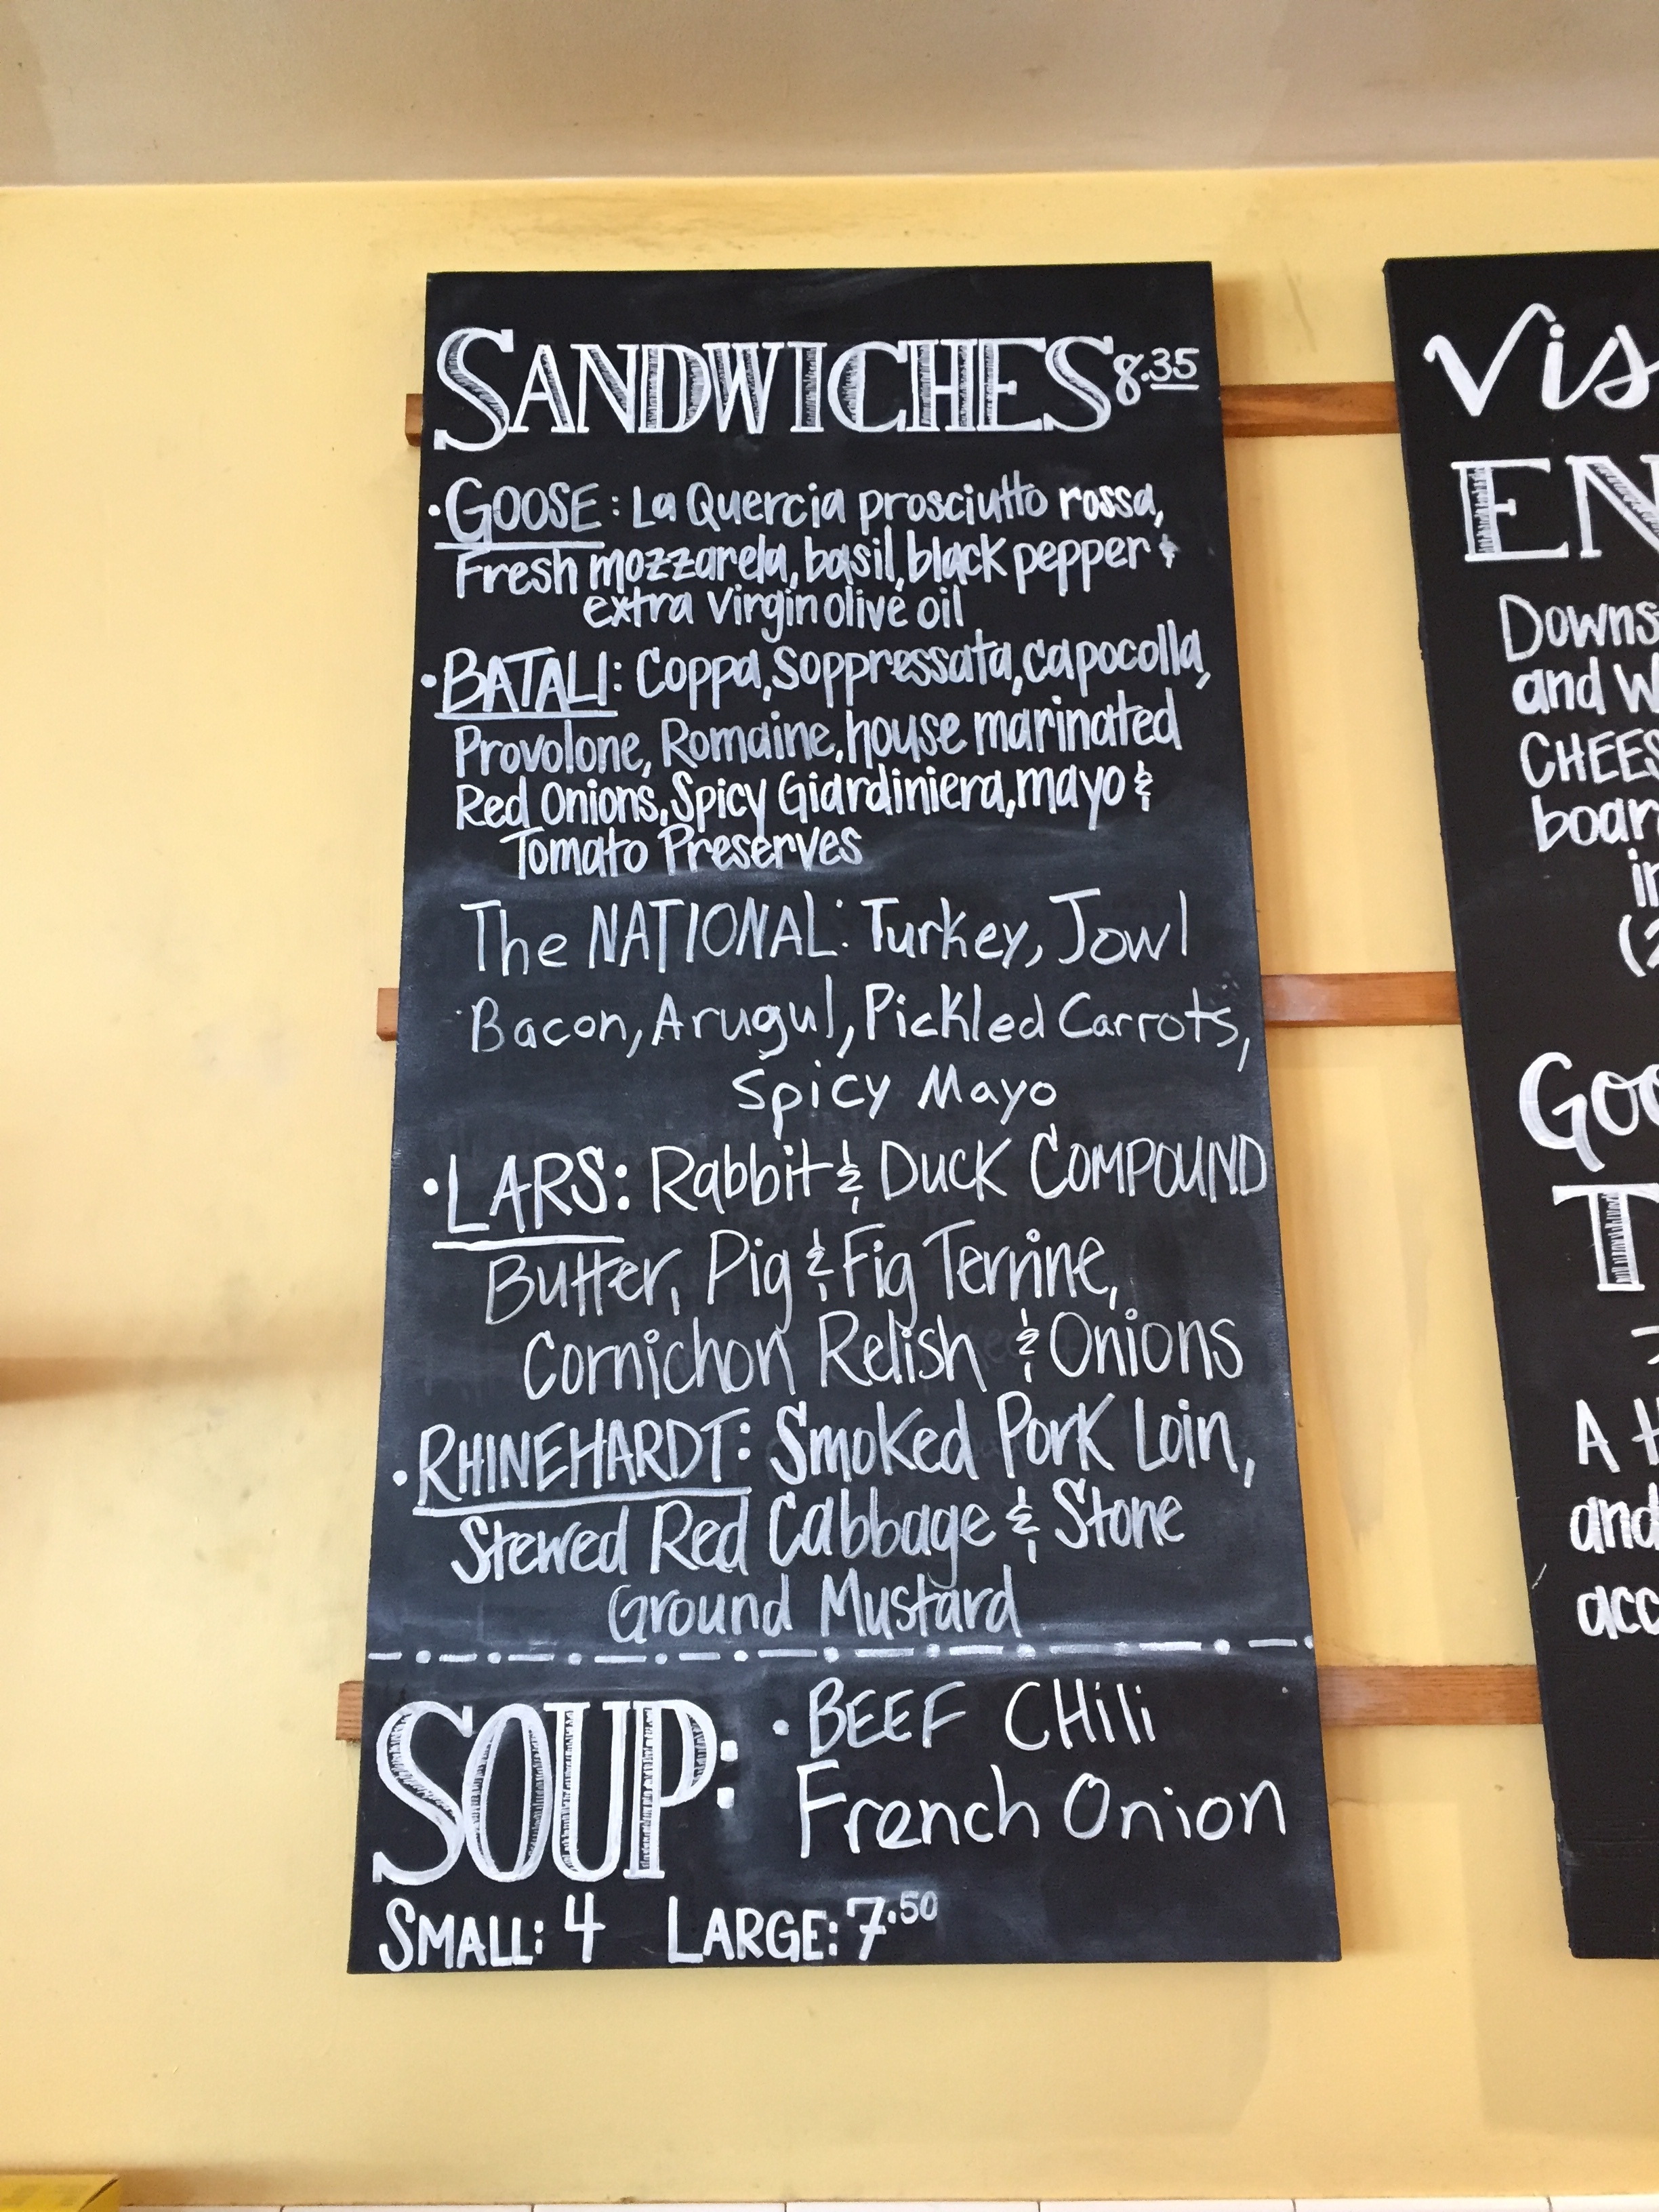 SANDWICHES 8.35
• GOOSE: La Quercia prosciutto rossa,
Fresh mozzarela, basil, black pepper &
extra Virgin olive oil
• BATALI: Coppa, Soppressata, capocolla,
Provolone, Romaine, house marinated
Red Onions, Spicy Giardiniera, mayo &
Tomato Preserves
The NATIONAL: Turkey, Jowl
Bacon, Arugul, Pickled Carrots,
Spicy Mayo
• LARS: Rabbit & Duck COMPOUND
Butter, Pig & Fig Terrine,
Cornichon Relish & Onions
• RHINEHARDT: Smoked Pork Loin,
Stewed Red Cabbage & Stone
Ground Mustard
SOUP: • BEEF CHili
French Onion
SMALL: 4 LARGE: 7.50
Vis
EN
Downs
and W
CHEES
boar
in
(2
Goo
T
A H
and
acc